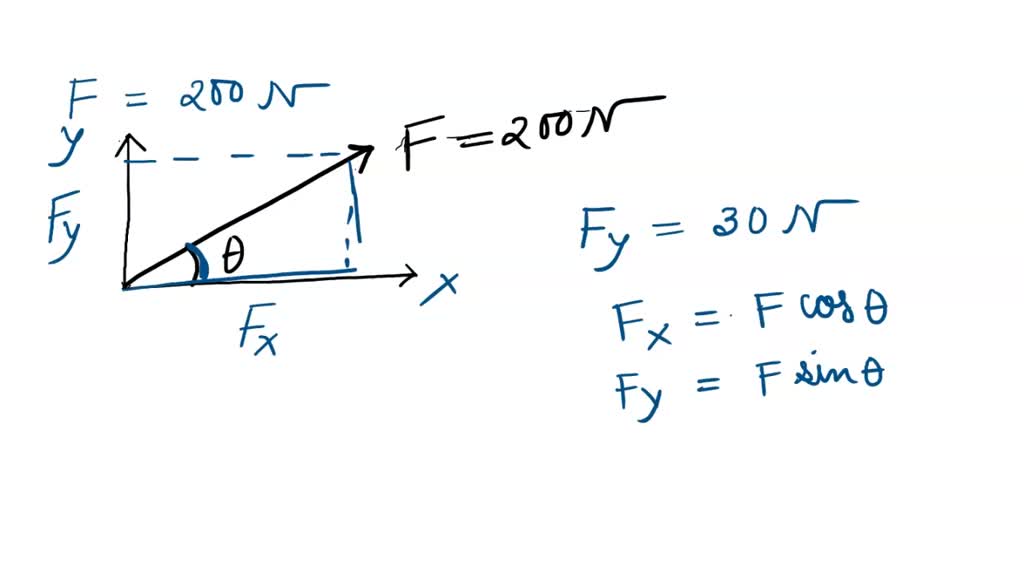 F = 200 N
y
F = 200 N
Fy
θ
x
Fx
Fy = 30 N
Fx = F cosθ
Fy = F sinθ